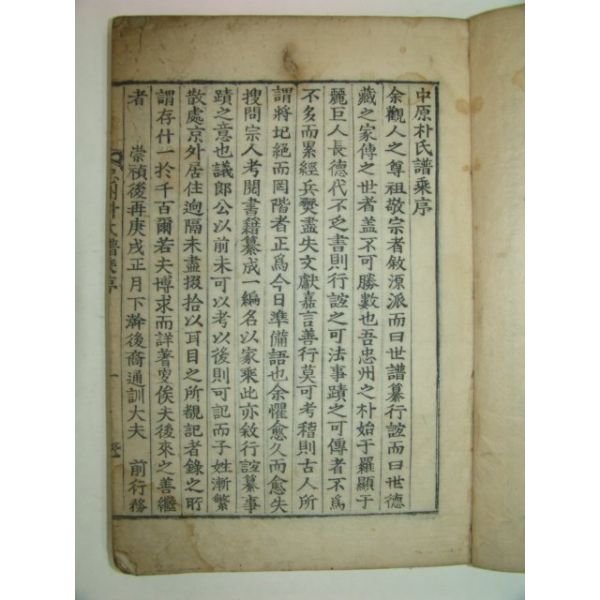 中原朴氏譜乘序
余觀人之尊祖敬宗者敘源派而曰世譜纂行誼而曰世德
藏之家傳之世者盖不可勝數也吾忠州之朴始于羅顯于
麗巨人長德代不乏書則行誼之可法事蹟之可傳者不爲
不多而累經兵燹盡失文獻嘉言善行莫可考稽則古人所
謂將圮絕而罔階者正爲今日準備語也余懼愈久而愈失
搜問宗人考閱書籍纂成一編名以家乘此亦敘行誼纂事
蹟之意也議郎公以前未可以考以後則可記而子姓漸繁
散處京外居住逈隔未盡掇拾以耳目之所覩記者錄之所
謂存什一於千百爾若夫博求而詳著安俟夫後來之善繼
者 崇禎後再庚戌正月下澣後裔通訓大夫 前行務
忠州朴氏譜乘序 一